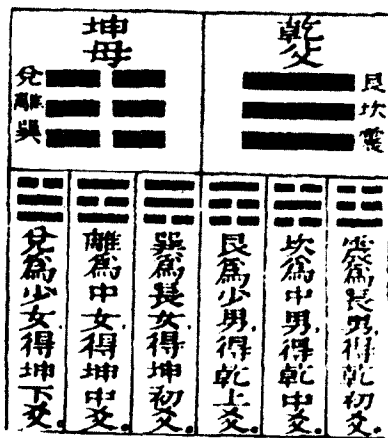 乾父
艮
坎
震
坤母
兌
離
巽
震為長男得乾初爻
坎為中男得乾中爻
艮為少男得乾上爻
巽為長女得坤初爻
離為中女得坤中爻
兌為少女得坤下爻